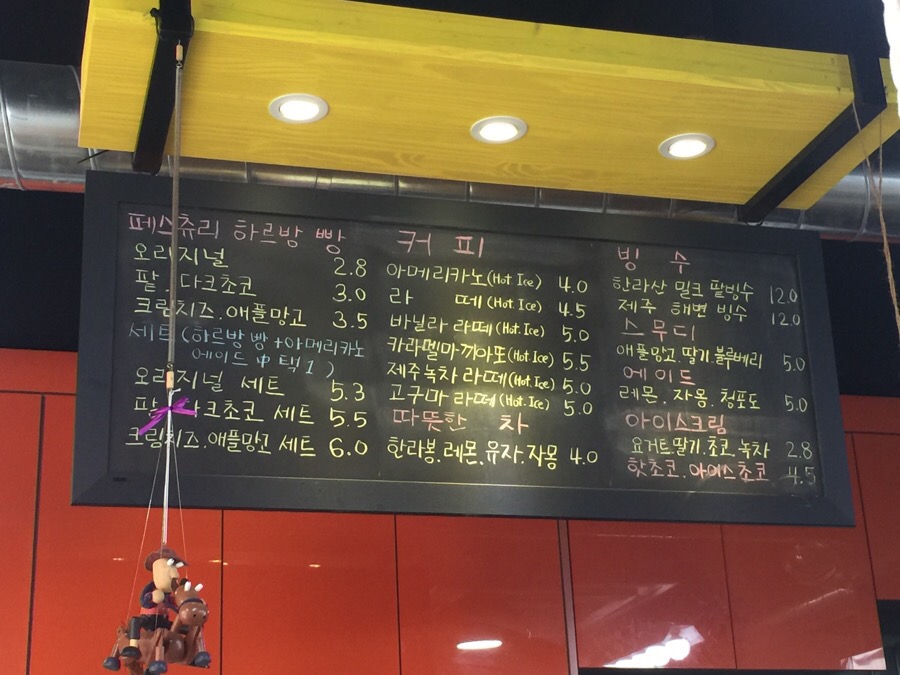 페스츄리 하르방 빵
오리지널 2.8
팥. 다크초코 3.0
크림치즈. 애플망고 3.5
세트 (하르방빵 + 아메리카노
에이드 中 택 1)
오리지널 세트 5.3
팥. 다크초코 세트 5.5
크림치즈. 애플망고 세트 6.0
커 피
아메리카노 (Hot. Ice) 4.0
라 떼 (Hot. Ice) 4.5
바닐라 라떼 (Hot. Ice) 5.0
카라멜마끼아또 (Hot. Ice) 5.5
제주녹차 라떼 (Hot. Ice) 5.0
고구마 라떼 (Hot. Ice) 5.0
따뜻한 차
한라봉. 레몬. 유자. 자몽 4.0
빙 수
한라산 밀크 팥빙수 12.0
제주 해변 빙수 12.0
스무디
애플망고 딸기 블루베리 5.0
에이드
레몬. 자몽. 청포도 5.0
아이스크림
요거트. 딸기. 초코. 녹차 2.8
핫초코. 아이스초코 4.5